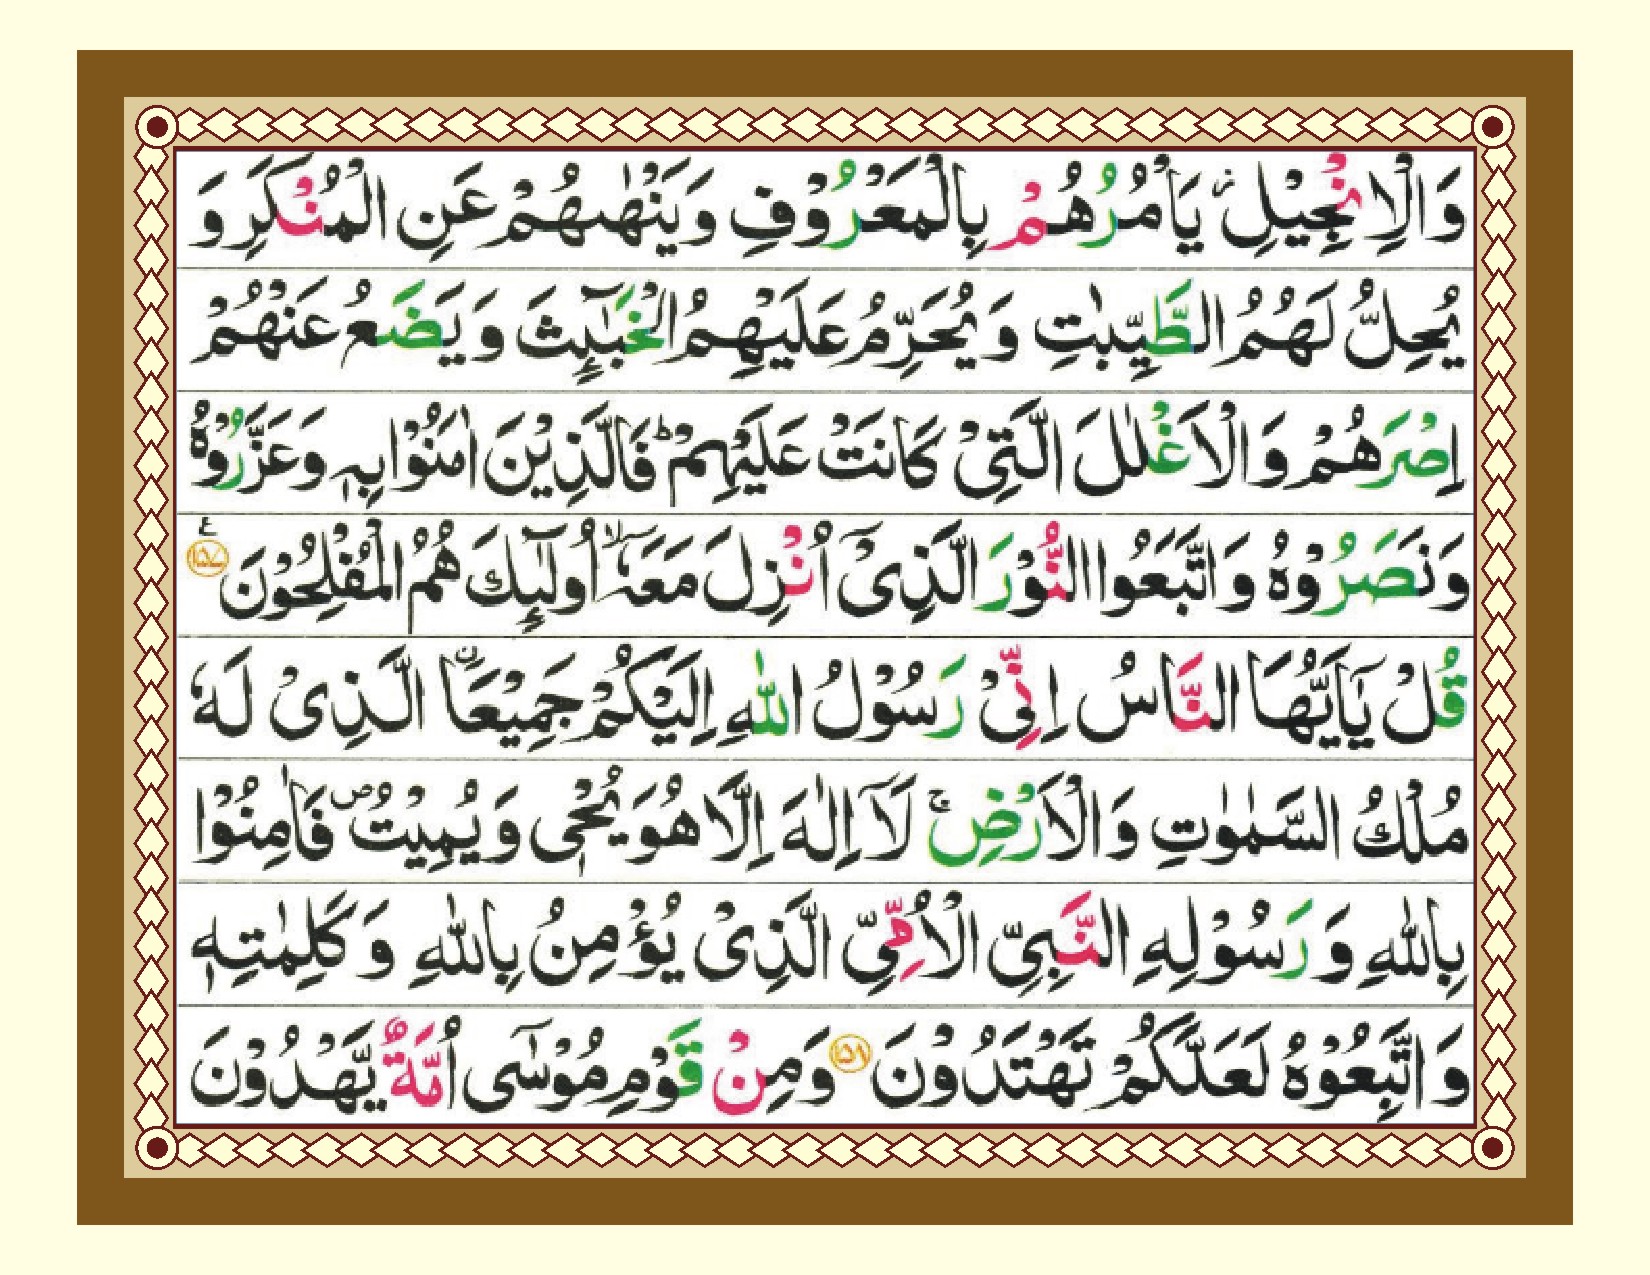 وَالْاِنْجِيْلِ ؗ يَاْمُرُهُمْ بِالْمَعْرُوْفِ وَيَنْهٰىهُمْ عَنِ الْمُنْكَرِ وَ
يُحِلُّ لَهُمُ الطَّيِّبٰتِ وَ يُحَرِّمُ عَلَيْهِمُ الْخَبٰٓىِٕثَ وَ يَضَعُ عَنْهُمْ
اِصْرَهُمْ وَ الْاَغْلٰلَ الَّتِیْ كَانَتْ عَلَيْهِمْ ؕ فَالَّذِيْنَ اٰمَنُوْا بِهٖ وَ عَزَّرُوْهُ
وَ نَصَرُوْهُ وَ اتَّبَعُوا النُّوْرَ الَّذِیْۤ اُنْزِلَ مَعَهٗۤ ۙ اُولٰٓىِٕكَ هُمُ الْمُفْلِحُوْنَ ۧ ﴿۱۵۷﴾
قُلْ يٰۤاَيُّهَا النَّاسُ اِنِّیْ رَسُوْلُ اللّٰهِ اِلَيْكُمْ جَمِيْعَا ۟ الَّذِیْ لَهٗ
مُلْكُ السَّمٰوٰتِ وَ الْاَرْضِ ۚ لَاۤ اِلٰهَ اِلَّا هُوَ يُحْیٖ وَ يُمِيْتُ ۪ فَاٰمِنُوْا
بِاللّٰهِ وَ رَسُوْلِهِ النَّبِیِّ الْاُمِّیِّ الَّذِیْ يُؤْمِنُ بِاللّٰهِ وَ كَلِمٰتِهٖ
وَ اتَّبِعُوْهُ لَعَلَّكُمْ تَهْتَدُوْنَ ﴿۱۵۸﴾ وَ مِنْ قَوْمِ مُوْسٰۤی اُمَّةٌ يَّهْدُوْنَ